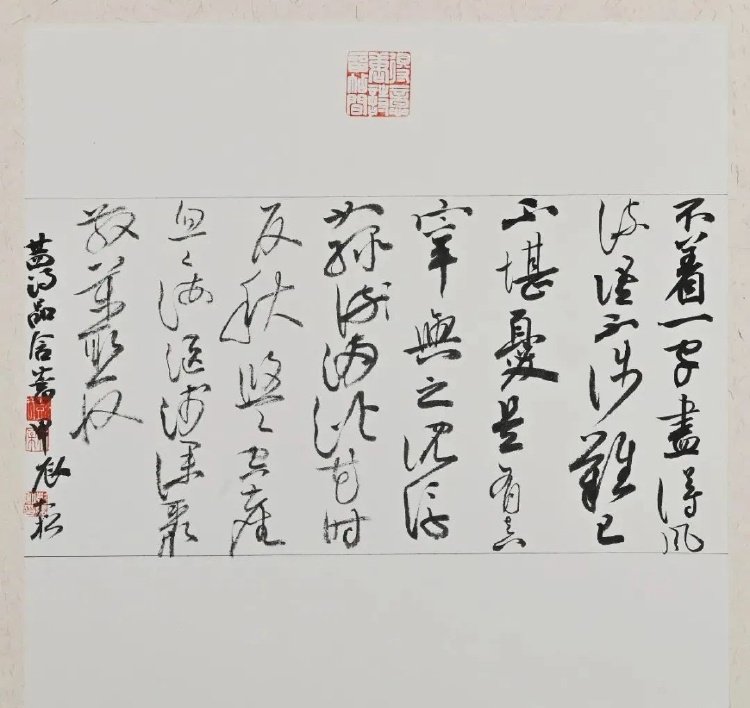 不着一字盡得風
流語不涉難已
不堪憂是有真
宰與之沉浮
如淥滿酒花時
反秋悠悠空塵
忽忽海漚淺深聚
散萬取一收
詩品含蓄 甲辰 松